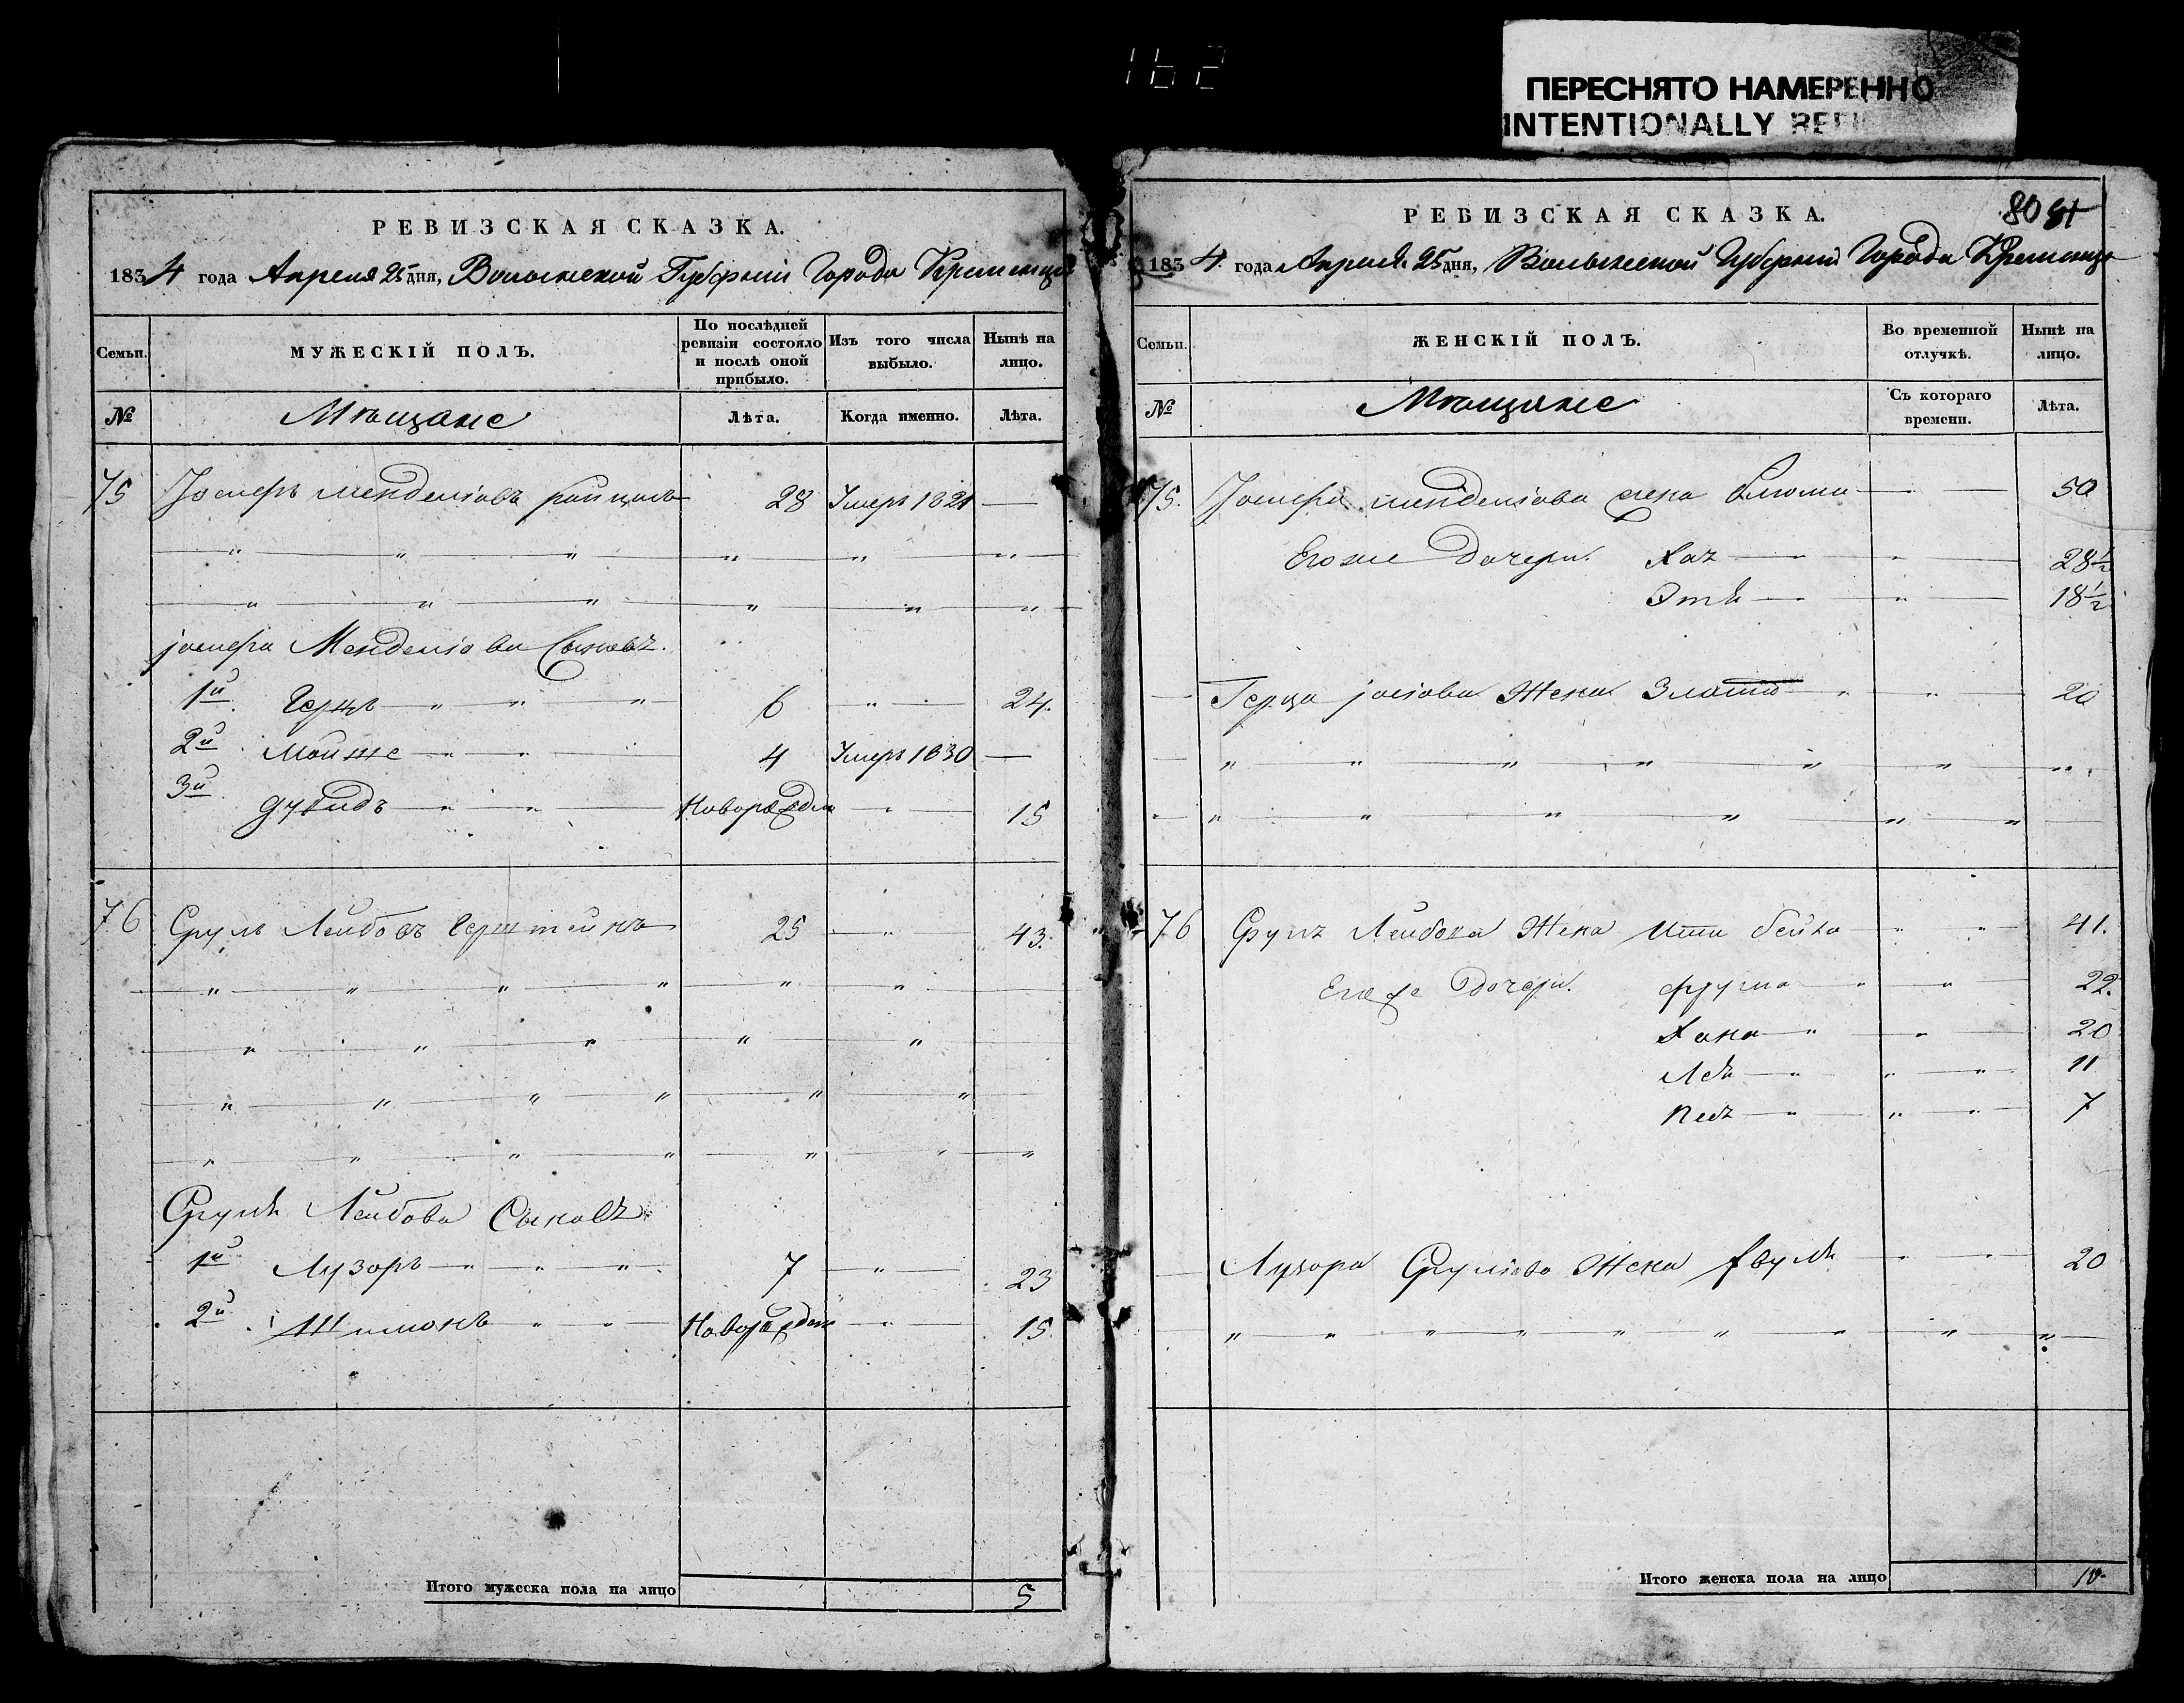 162
ПЕРЕСНЯТО НАМЕРЕННО
INTENTIONALLY
РЕВИЗСКАЯ СКАЗКА.
1834 года Апреля 25 дня, Волынской Губерніи Города Кременца
Семьи. МУЖЕСКІЙ ПОЛЪ. По послѣдней ревизіи состояло и послѣ оной прибыло. Изъ того числа выбыло. Нынѣ на лицо.
№ Мѣщане Лѣта. Когда именно. Лѣта.
75 Менделіовъ 28 Умеръ 1821 —
Менделіова Сыновья.
1й Герцъ 6 24.
2й Мойше 4 Умеръ 1830 —
3й Дувидъ Новорожден 15
76 Сруль Лейбовъ Герштейнъ 25 43.
Сруля Лейбова Сыновья
1й Лузоръ 7 23
2й Шимонъ Новорожден 15
Итого мужеска пола на лицо 5
РЕВИЗСКАЯ СКАЗКА. 80 81
1834 года Апреля 25 дня, Волынской Губерніи Города Кременца
Семьи. ЖЕНСКІЙ ПОЛЪ. Во временной отлучкѣ. Нынѣ на лицо.
№ Мѣщане Съ котораго времени. Лѣта.
75. Менделіова жена Блюма 50
Его же Дочери. Хая 28½
Этя 18½
Герца Жена Злата 20
76 Сруля Лейбова Жена Ити Бейла 41.
Его же Дочери. Фрума 22.
Хана 20
Лея 11
7
Лузора Сруліова Жена 20
Итого женска пола на лицо 10